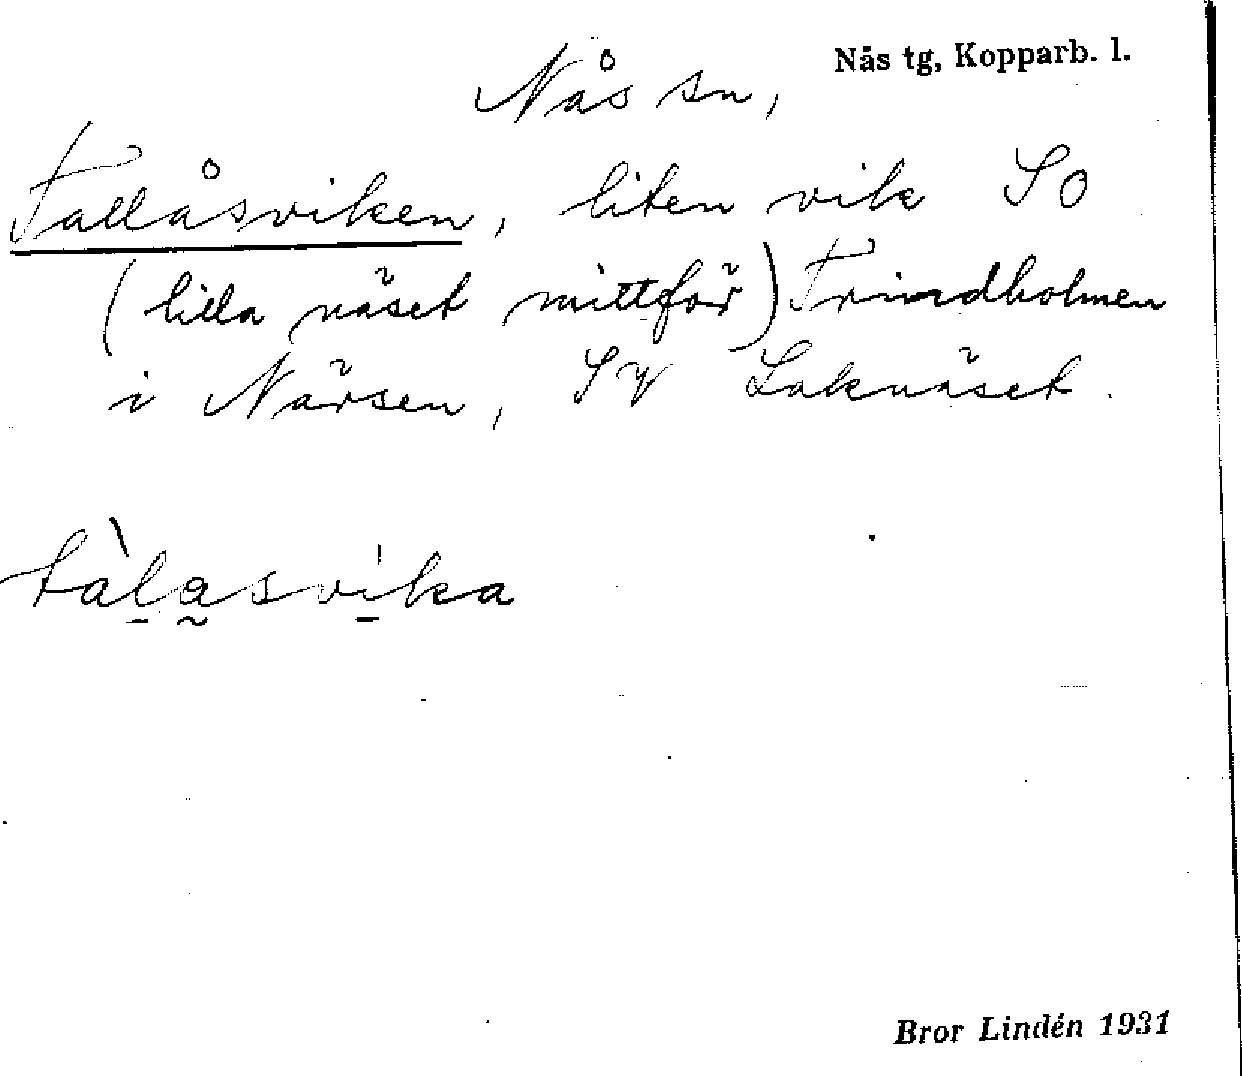 Nås tg, Kopparb. l.
Nås sn,
Tallåsviken, liten vik SO
(lilla näset mittför) Trindholmen
i Närsen, SV Laknäset.
tàlasvika
Bror Lindén 1931